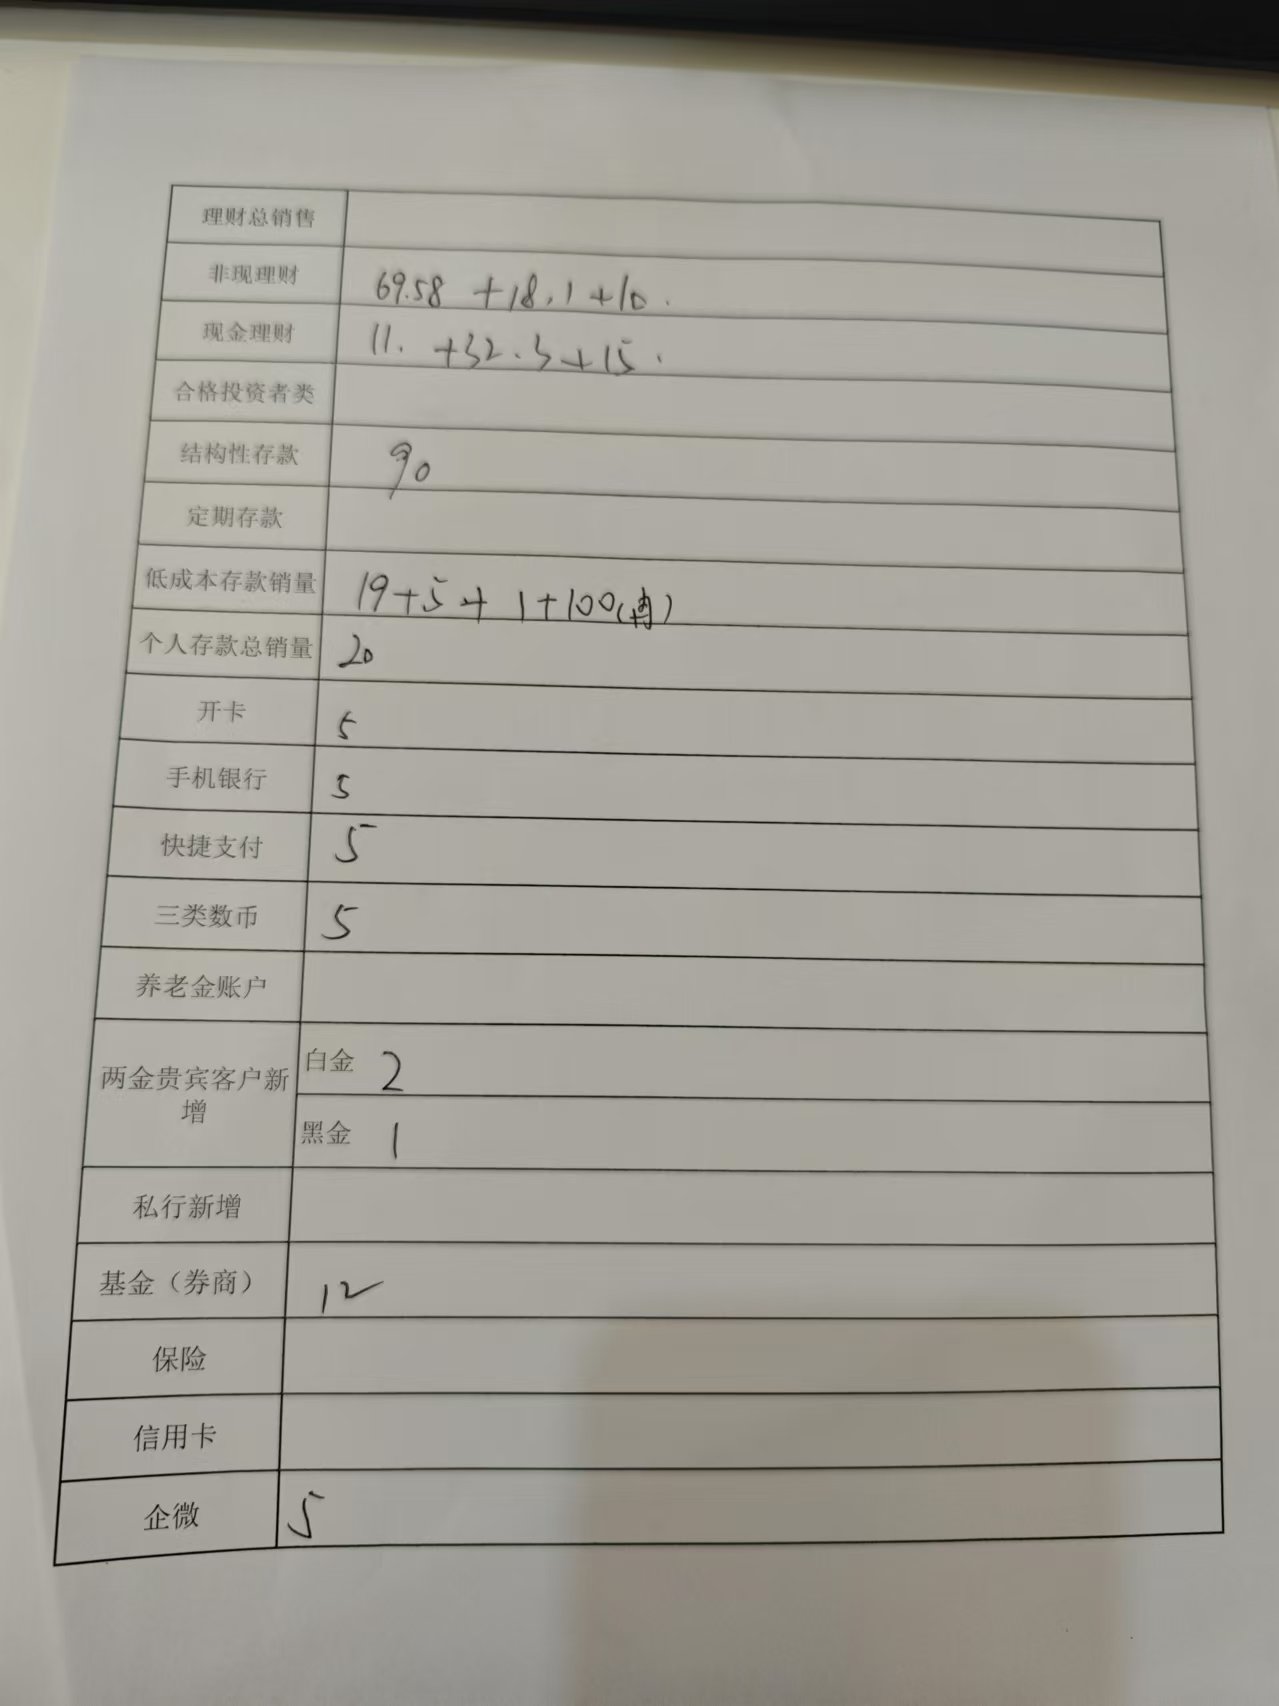 理财总销售
非现理财 69.58 +18.1+10.
现金理财 11. +32.3+15.
合格投资者类
结构性存款 90
定期存款
低成本存款销量 19+5+1+100( )
个人存款总销量 20
开卡 5
手机银行 5
快捷支付 5
三类数币 5
养老金账户
两金贵宾客户新
增
白金 2
黑金 1
私行新增
基金（券商） 12
保险
信用卡
企微 5